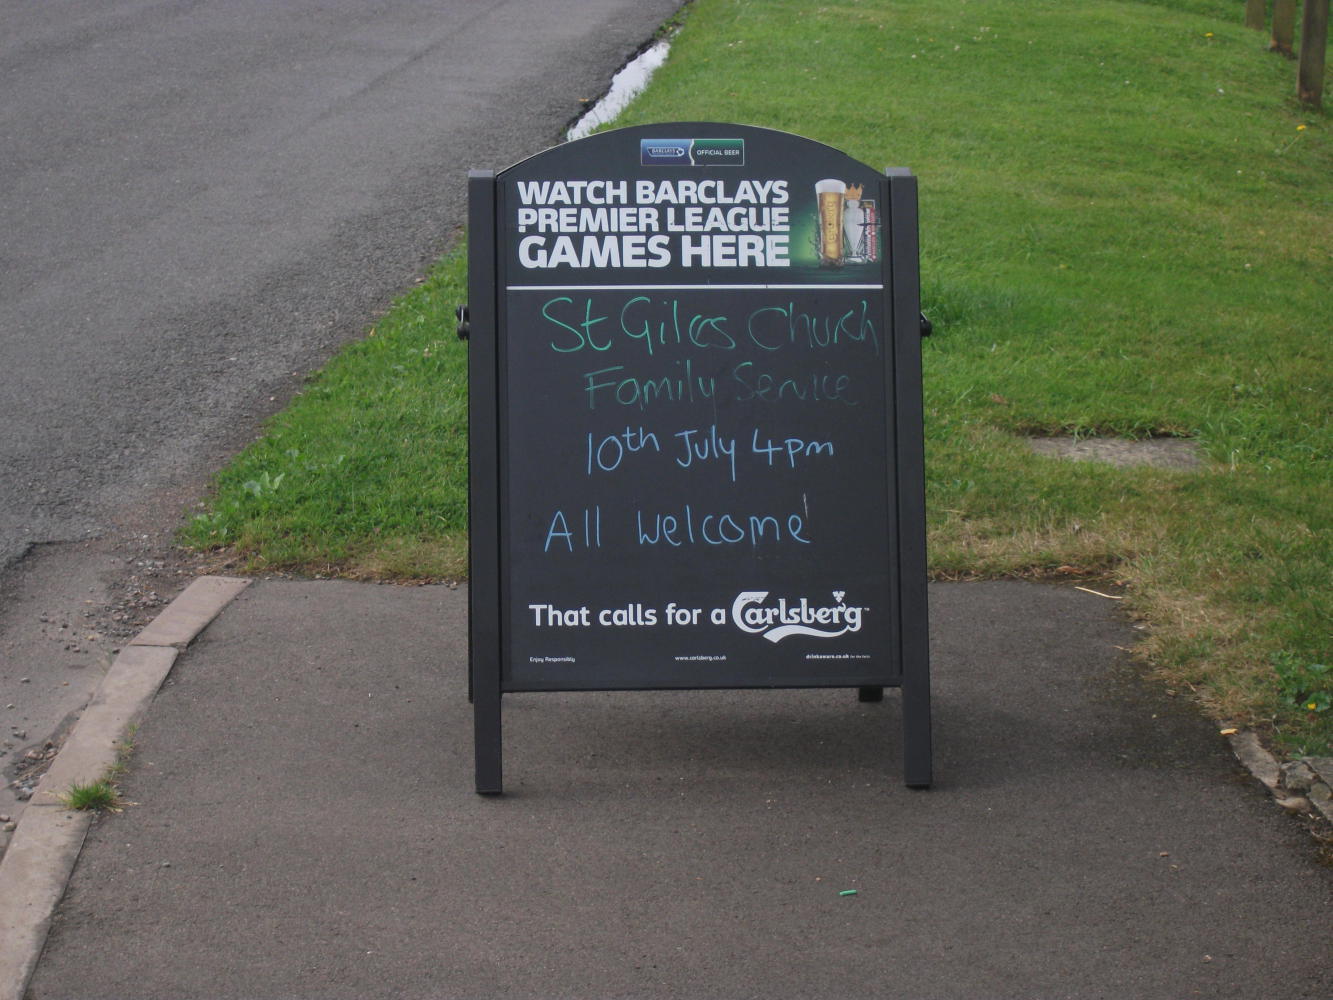 BARCLAYS OFFICIAL BEER
WATCH BARCLAYS
PREMIER LEAGUE
GAMES HERE
St Giles Church
Family Service
10th July 4pm
All welcome
That calls for a Carlsberg
Enjoy Responsibly www.carlsberg.co.uk drinkaware.co.uk for the facts